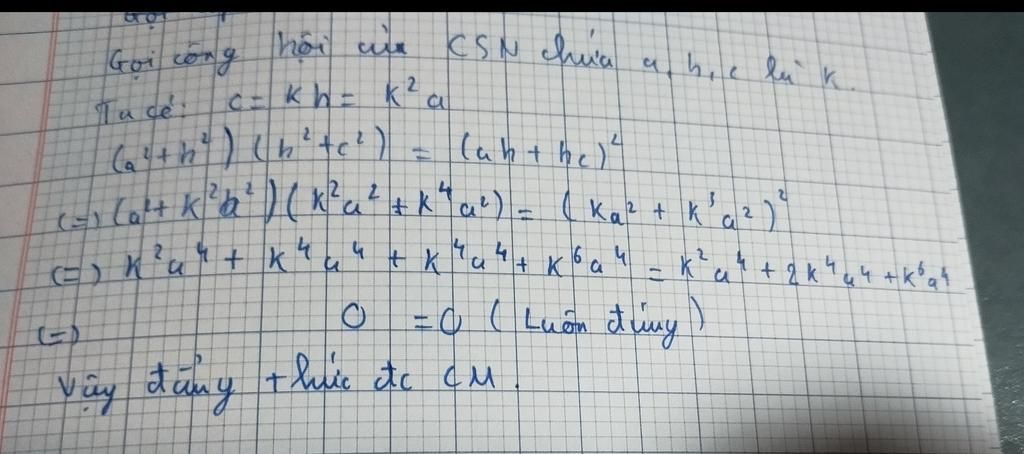 Gọi công bội của CSN chứa a, b, c là k.
Ta có: c = kb = k²a
(a²+b²)(b²+c²) = (ab + bc)²
(=) (a²+k²a²)(k²a²+k⁴a²) = (ka² + k³a²)²
(=) k²a⁴ + k⁴a⁴ + k⁴a⁴ + k⁶a⁴ = k²a⁴ + 2k⁴a⁴ + k⁶a⁴
(=) 0 = 0 (Luôn đúng)
Vậy đẳng thức đc CM.